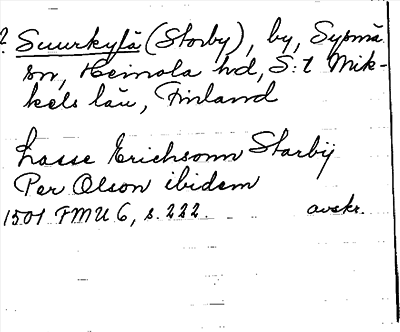 ? Suurkylä (Storby), by, Sysmä
sn, Heinola hd, S:t Mik-
kels län, Finland
Lasse Erichsonn Starbij
Per Olson ibidem
1501 FMU 6, s. 222. avskr.